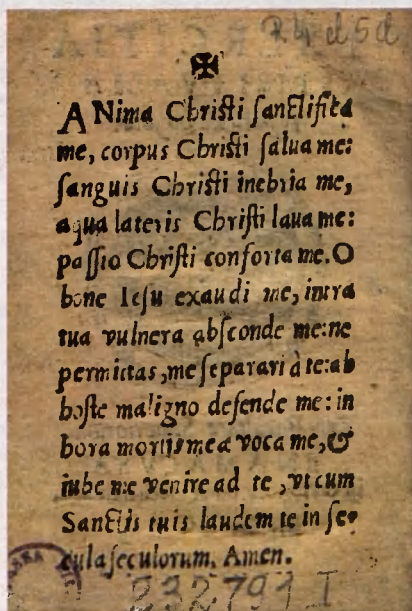 24 d 5 d
✠
ANima Chriſti ſanctifica
me, corpus Chriſti ſalua me:
ſanguis Chriſti inebria me,
aqua lateris Chriſti laua me:
paſſio Chriſti conforta me. O
bone Ieſu exaudi me, intra
tua vulnera abſconde me: ne
permittas, me ſeparari à te: ab
hoſte maligno defende me: in
hora mortis meæ voca me, &
iube me venire ad te, vt cum
Sanctis tuis laudem te in ſe-
cula ſeculorum, Amen.
232791 I